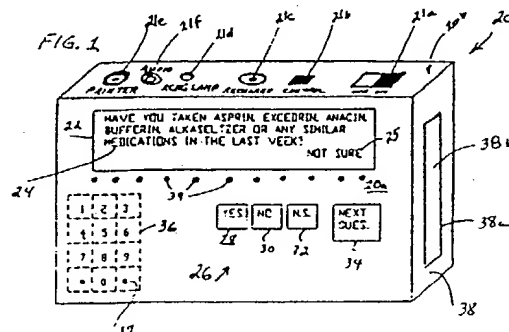 FIG. 1
21e 21f 21d 21c 21b 21a 20
AUDIO
PRINTER RCHG LAMP RECHARGE CONTROL
22
HAVE YOU TAKEN ASPRIN, EXCEDRIN, ANACIN,
BUFFERIN, ALKASELTZER OR ANY SIMILAR
MEDICATIONS IN THE LAST WEEK?
NOT SURE
25
24
39
20a
38b
38a
1 2 3
4 5 6
7 8 9
* 0 *
36
YES NO N.S. NEXT
QUES.
28 30 32 34
26
38
37